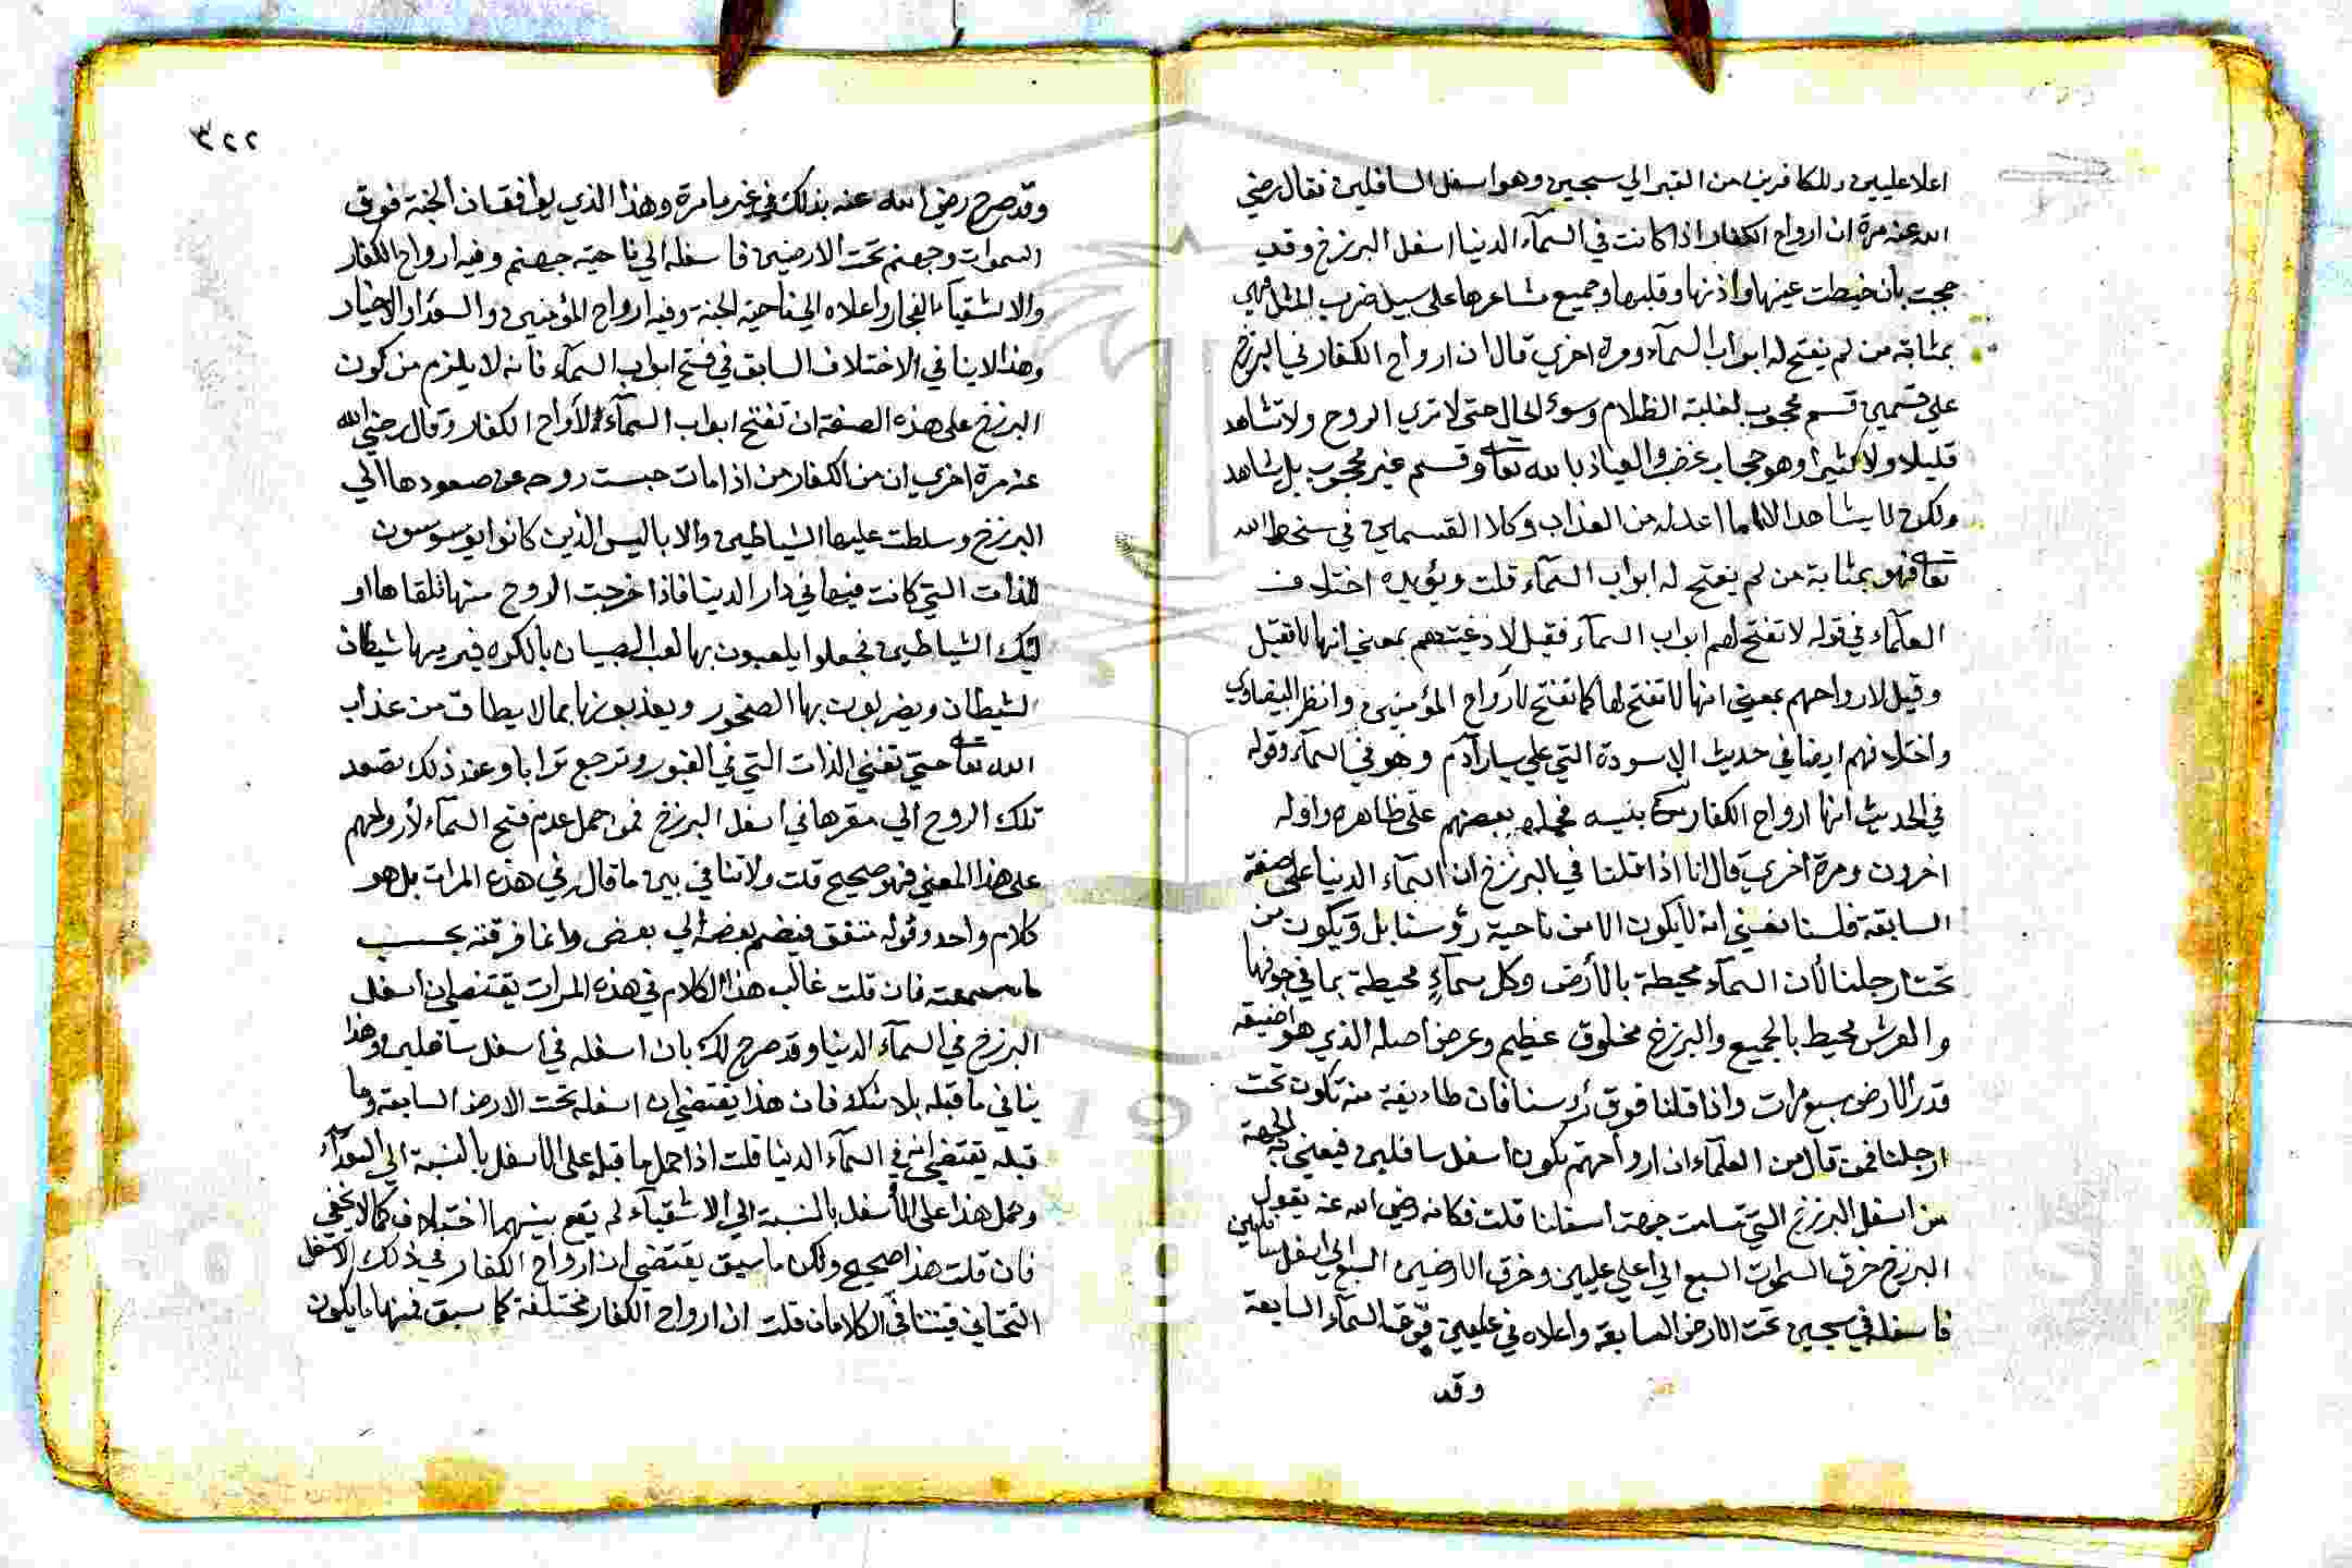 اعلا عليين وللكافرين من القبر الي سجين وهو اسفل السافلين فقال رضي
الله عنه مرة ان ارواح الكفار اذا كانت في السمآء الدنيا اسفل البرزخ وقد
حجبت بان خيطت عينها واذنها وقلبها وجميع مشاعرها علي سبيل ضرب المثل فهي
بمثابة من لم يفتح له ابواب السمآء ومرة اخري قال ان ارواح الكفار في البرزخ
علي قسمين قسم محجوب لغلبة الظلام وسوء الحال حتي لا تري الروح ولا تشاهد
قليلا ولا كثيرا وهو حجاب غضب والعياذ بالله تعا وقسم غير محجوب بل يشاهد
ولكن لا يشاهد الا ما اعد له من العذاب وكلا القسمين في سخط الله
تعا فهو بمثابة من لم يفتح له ابواب السمآء قلت ويؤيده اختلاف
العلمآء في قوله لا تفتح لهم ابواب السمآء فقيل لادعيتهم بمعني انها لا تقبل
وقيل لارواحهم بمعني انها لا تفتح لها كما تفتح لأرواح المؤمنين وانظر البيضاوي
واختلافهم ايضا في حديث الاسودة التي علي يسار آدم وهو في السمآء وقوله
في الحديث انها ارواح الكفار من بنيه فحمله بعضهم علي ظاهره واوله
اخرون ومرة اخري قال انا اذا قلنا في البرزخ ان السمآء الدنيا علي الصفة
السابقة فلسنا نعني انه لا يكون الا من ناحية رؤسنا بل ويكون من
تحت ارجلنا لأن السمآء محيطة بالأرض وكل سمآءٍ محيطة بما في جوفها
والعرش محيط بالجميع والبرزخ مخلوق عظيم وعرض اصله الذي هو اضيقه
قدر الارض سبع مرات واذا قلنا فوق رؤسنا فان طائفة منه تكون تحت
ارجلنا فمن قال من العلمآء ان ارواحهم تكون اسفل سافلين فيعني به الجهة
من اسفل البرزخ التي تسامت جهة اسفلنا قلت فكانه رضي الله عنه يقول
البرزخ خرق السموات السبع الي اعلي عليين وخرق الارضين السبع الي اسفل سافلين
فاسفله في سجين تحت الارض السابعة واعلاه في عليين فوق السمآء السابعة
وقد
٣٢٢
وقد صرح رضي الله عنه بذلك في غير ما مرة وهذا الذي يوافق ان الجنة فوق
السموات وجهنم تحت الارضين فاسفله الي ناحية جهنم وفيه ارواح الكفار
والاشقيآء الفجار واعلاه الي ناحية الجنة وفيه ارواح المؤمنين والسعدآء الاخيار
وهذا لا ينافي الاختلاف السابق في فتح ابواب السمآء فانه لا يلزم من كون
البرزخ علي هذه الصفة ان تفتح ابواب السمآء لأرواح الكفار وقال رضي الله
عنه مرة اخري ان من الكفار من اذا مات حبست روحه عن صعودها الي
البرزخ وسلطت عليها الشياطين والاباليس الذين كانوا يوسوسون
للذات التي كانت فيها في دار الدنيا فاذا خرجت الروح منها تلقاها او
ليك الشياطين فجعلوا يلعبون بها لعب الصبيان بالكره فيرميها شيطان
لشيطان ويضربون بها الصخور ويعذبونها بما لا يطاق من عذاب
الله تعا حتي تفني الذات التي في القبور وترجع ترابا وعند ذلك تصعد
تلك الروح الي مقرها في اسفل البرزخ فمن حمل عدم فتح السمآء لأرواحهم
علي هذا المعني فهو صحيح قلت ولا تنافي بين ما قال في هذه المرات بل هو
كلام واحد وقوله متفق فيضم بعضه الي بعض وانما فرقته بحسب
ما سمعته فان قلت غالب هذا الكلام في هذه المرات يقتضي ان اسفل
البرزخ في السمآء الدنيا وقد صرح لك بان اسفله في اسفل سافلين وهذا
ينافي ما قبله بلا شك فان هذا يقتضي ان اسفله تحت الارض السابعة وما
قبله يقتضي انه في السمآء الدنيا قلت اذا حمل ما قبله علي الاسفل بالنسبة الي السعدآء
وحمل هذا علي الأسفل بالنسبة الي الاشقيآء لم يقع بينهما اختلاف كما لا يخفي
فان قلت هذا صحيح ولكن ما سبق يقتضي ان ارواح الكفار في ذلك الاسفل
التحتاني فيتنافي الكلامان قلت ان ارواح الكفار مختلفة كما سبق فمنها ما يكون